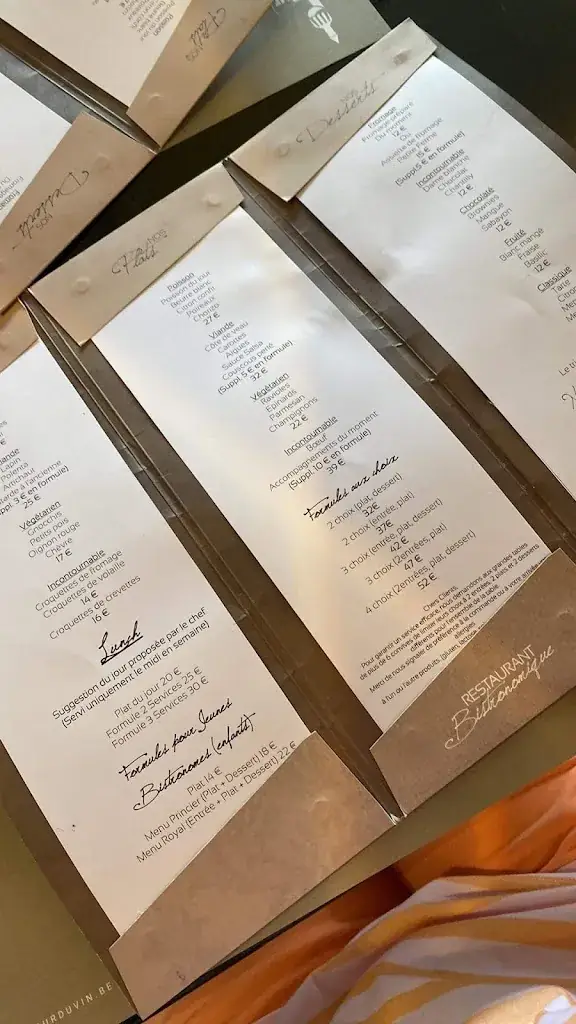 Poisson
NOS
Plats
NOS
Desserts
NOS
Plats
Poisson
Poisson du jour
Beurre blanc
Citron confit
Poireaux
Chorizo
27 €
Viande
Côte de veau
Carottes
Algues
Sauce Salsa
Couscous perlé
(Suppl. 5 € en formule)
32 €
Végétarien
Ravioles
Epinards
Parmesan
Champignons
22 €
Incontournable
Bœuf
Accompagnements du moment
(Suppl. 10 € en formule)
39 €
Formules aux choix
2 choix (plat, dessert)
32€
2 choix (entrée, plat)
37€
3 choix (entrée, plat, dessert)
42 €
3 choix (2entrées, plat)
47 €
4 choix (2entrées, plat, dessert)
52 €
Chers Clients,
Pour garantir un service efficace, nous demandons aux grandes tables
de plus de 6 convives de limiter leurs choix à 2 entrées, 2 plats et 2 desserts
différents pour l'ensemble de la table.
Merci de nous signaler de préférence à la commande ou à votre
allergies
à l'un ou l'autre produits. (gluten,
RESTAURANT
Bistronomique
NOS
Desserts
Fromage
Fromage préparé
Du moment
12 €
Ou
Assiette de fromage
Petite Ferme
15 €
(Suppl 5 € en formule)
Incontournable
Dame blanche
Chocolat
Chantilly
12 €
Chocolaté
Brownies
Mangue
Sabayon
12 €
Fruité
Blanc mangé
Fraise
Basilic
12 €
Classique
Tarte
Le
Lapin
Polenta
3 € en formule)
25 €
Végétarien
Gnocchis
Petits pois
Oignon rouge
Chèvre
17 €
Incontournable
Croquettes de fromage
Croquettes de volaille
14 €
Croquettes de crevettes
16 €
Lunch
Suggestion du jour proposée par le chef
(Servi uniquement le midi en semaine)
Plat du jour 20 €
Formule 2 Services 25 €
Formule 3 Services 30 €
Formules pour Jeunes
Bistronomes (enfants)
Plat 14 €
Menu Princier (Plat + Dessert) 18 €
Menu Royal (Entrée + Plat + Dessert) 22 €
URDUVIN.BE